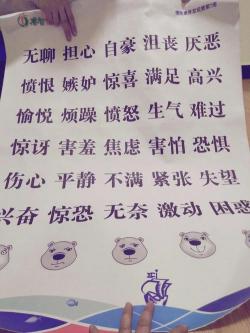 无聊 担心 自豪 沮丧 厌恶
愤恨 嫉妒 惊喜 满足 高兴
愉悦 烦躁 愤怒 生气 难过
惊讶 害羞 焦虑 害怕 恐惧
伤心 平静 不满 紧张 失望
兴奋 惊恐 无奈 激动 困惑